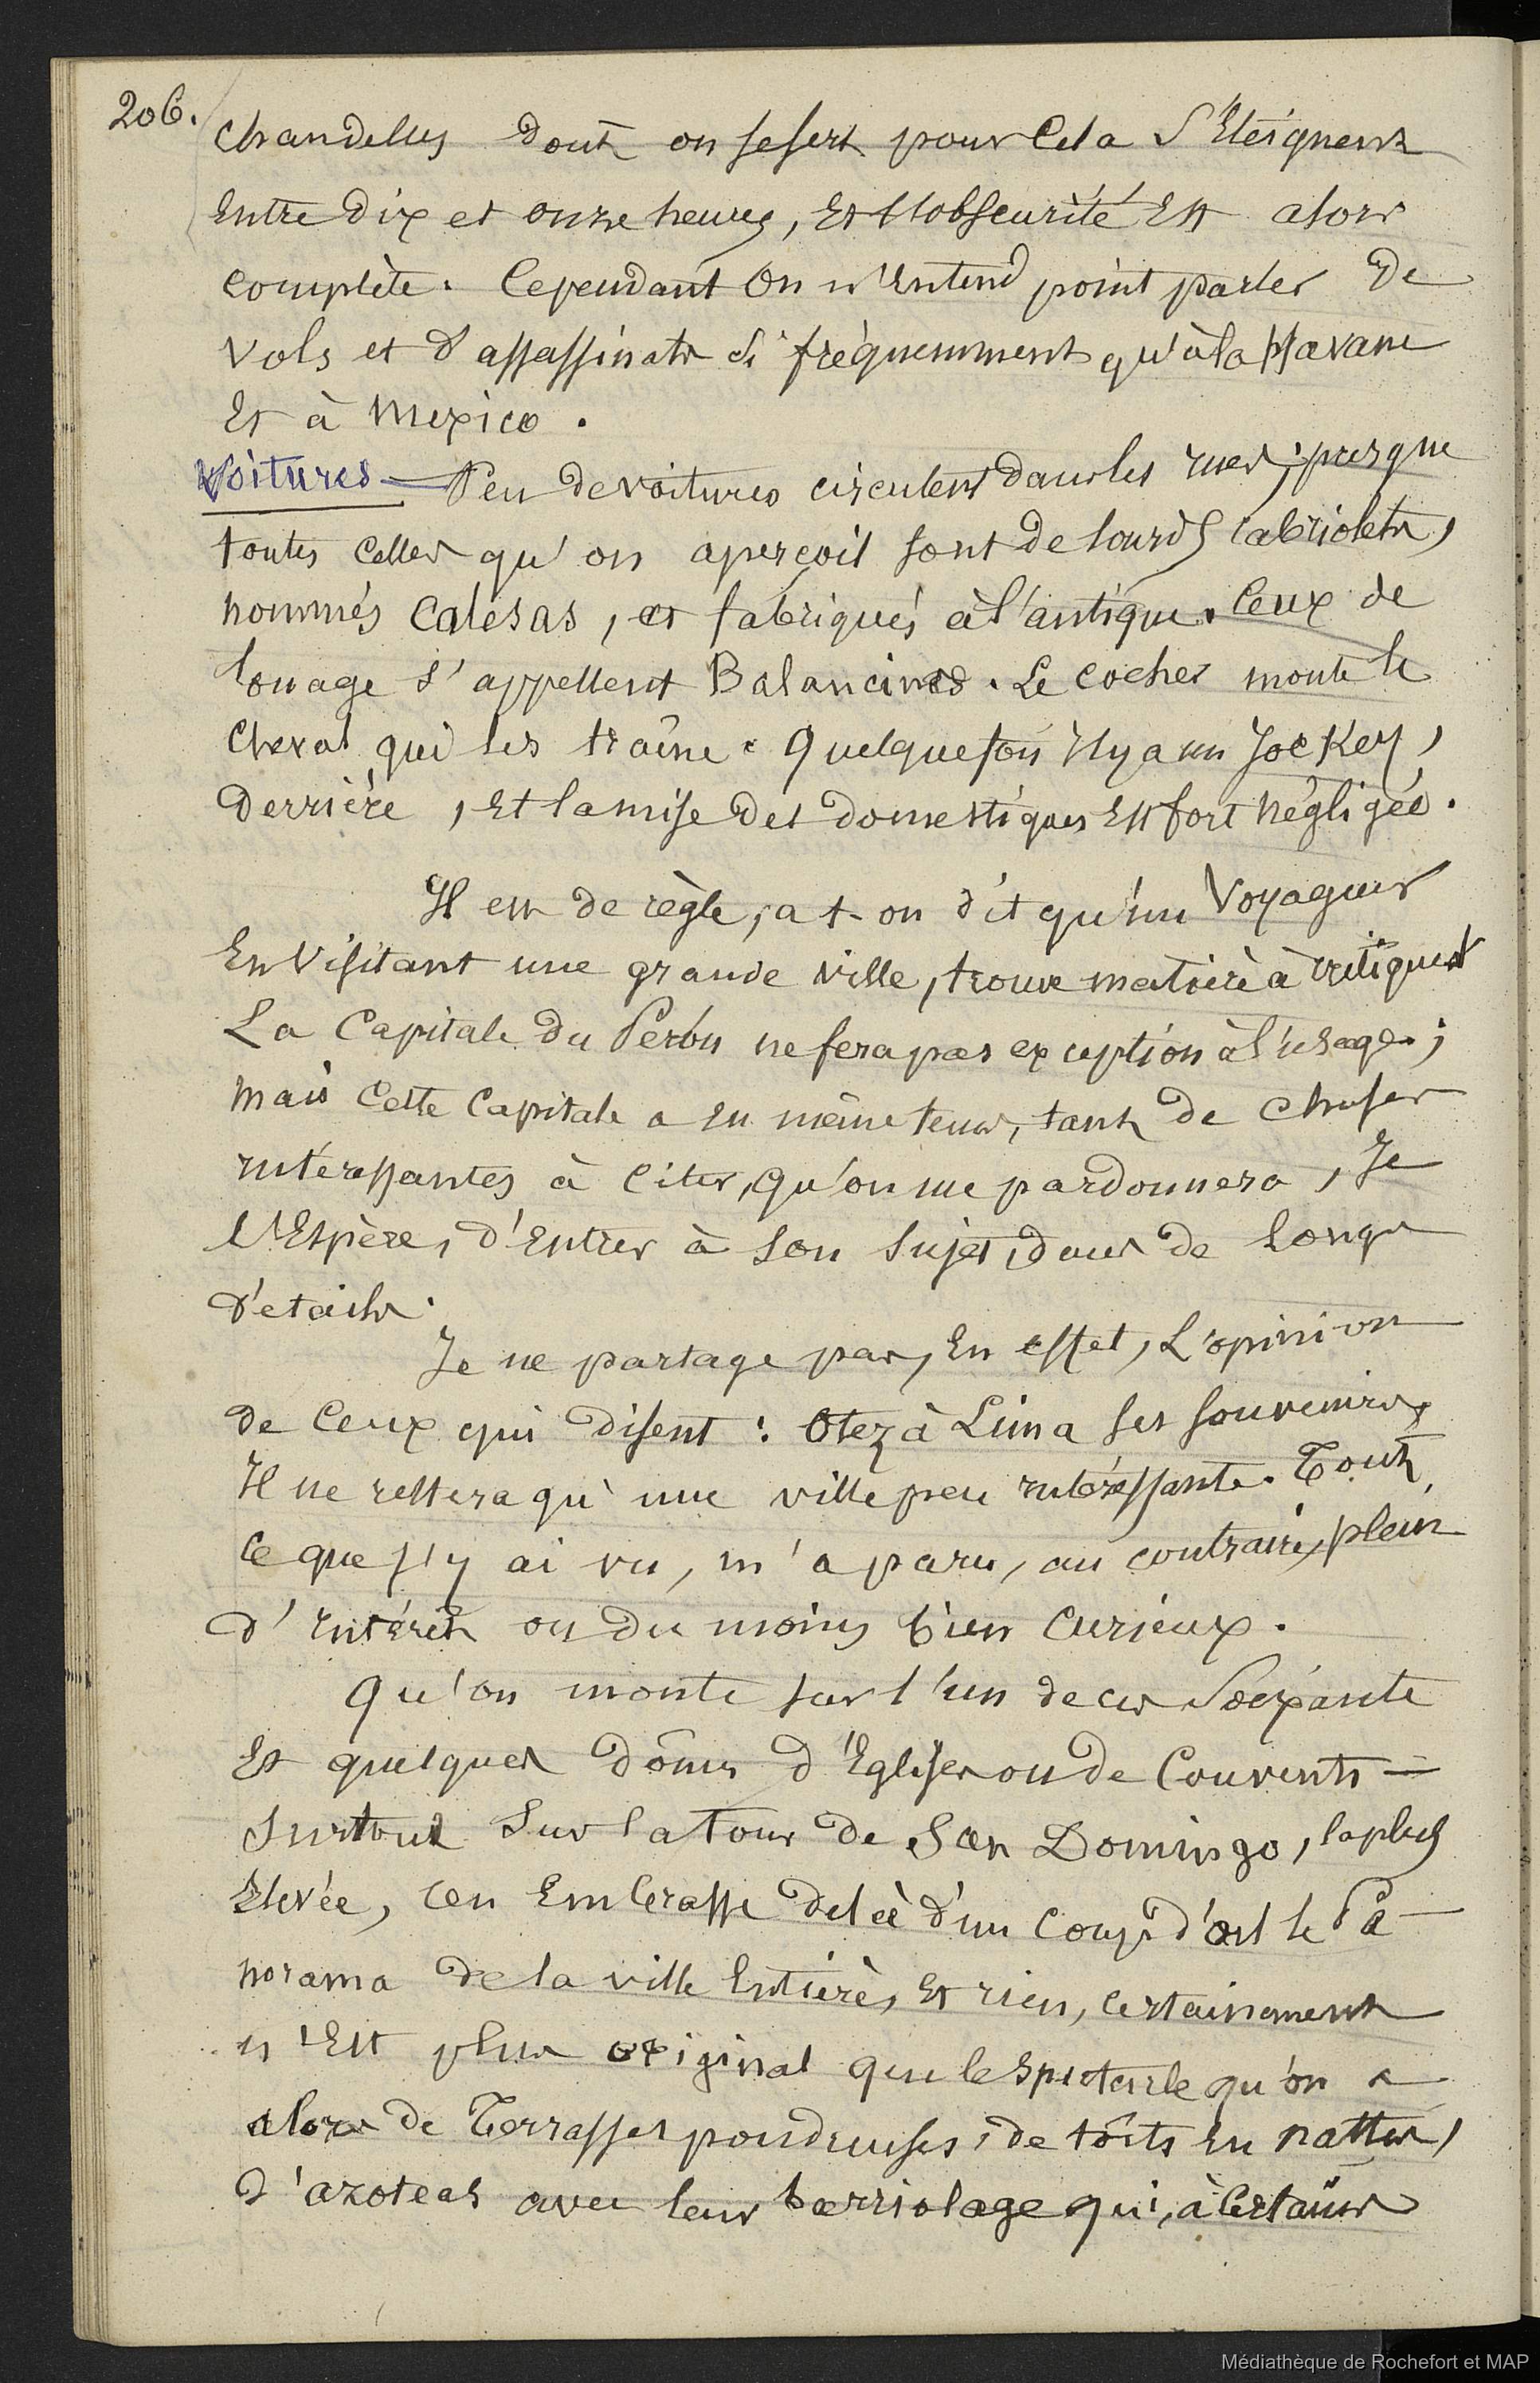 206.
chandelles dont on se sert pour cela s'Eteignent
Entre dix et onze heures, Et l'obscurité Est alors
complète. Cependant On n'Entend point parler de
vols et d'assassinats si fréquemment qu'à la Havane
Et à Mexico.
Voitures — Peu de voitures circulent dans les rues; presque
toutes celles qu'on aperçoit sont de lourds cabriolets,
nommés Calesas, et fabriqués à l'antique. Ceux de
louage s'appellent Balancines. Le cocher monte le
cheval qui les traîne. Quelquefois Il y a un Jockey,
derrière, Et la mise des domestiques Est fort négligée.
Il est de règle, a t-on dit qu'un Voyageur
En Visitant une grande ville, trouve matière à critiquer
La Capitale du Pérou ne fera pas exception à l'usage;
mais cette Capitale a en même tems, tant de choses
intéressantes à citer, qu'on me pardonnera, Je
l'Espère, d'Entrer à son sujet, dans de longs
détails.
Je ne partage pas, En effet, L'opinion
de ceux qui disent : Otez à Lima ses souvenirs,
Il ne restera qu'une ville peu intéressante. Tout
ce que j'y ai vu, m'a paru, au contraire, plein
d'intérêt ou du moins bien curieux.
Qu'on monte sur l'un de ces Soixante
Et quelques dômes d'Eglises ou de Couvents —
surtout sur la Tour de San Domingo, la plus
Elevée, l'on Embrasse de là d'un coup d'œil le Pa-
norama de la ville Entière, Et rien, certainement
n'Est plus original que le spectacle qu'on a
alors de Terrasses poudreuses, de toîts en nattes,
d'azoteas avec leur barriolage qui, à certains
Médiathèque de Rochefort et MAP